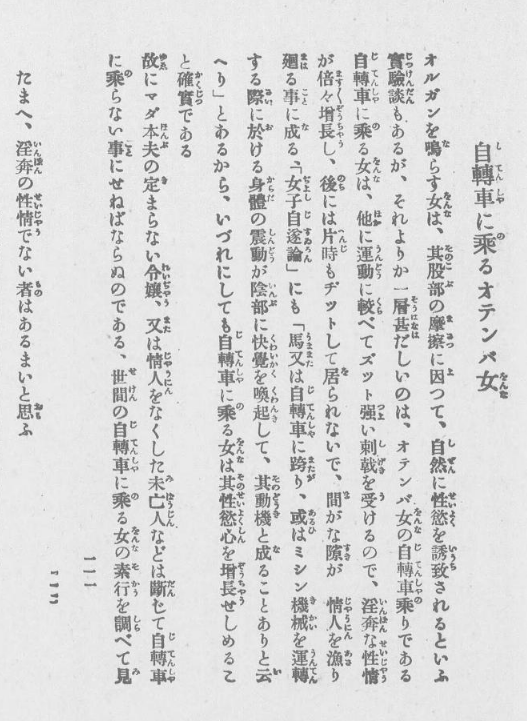 自轉車に乘るオテンバ女
オルガンを鳴らす女は、其股部の摩擦に因つて、自然に性慾を誘致されるといふ
實驗談もあるが、それよりか一層甚だしいのは、オテンバ女の自轉車乘りである
自轉車に乘る女は、他に運動に較べてズット强い刺戟を受けるので、淫奔な性情
が倍々增長し、後には片時もヂツトして居られないで、間がな隙が　情人を漁り
廻る事に成る、「女子自遂論」にも「馬又は自轉車に跨り、或はミシン機械を運轉
する際に於ける身體の震動が陰部に快覺を喚起して、其動機と成ることありと云
へり」とあるから、いづれにしても自轉車に乘る女は其性慾心を增長せしめるこ
と確實である
故にマダ本夫の定まらない令孃、又は情人をなくした未亡人などは斷じて自轉車
に乘らない事にせねばならぬのである、世間の自轉車に乘る女の素行を調べて見
たまへ、淫奔の性情でない者はあるまいと思ふ